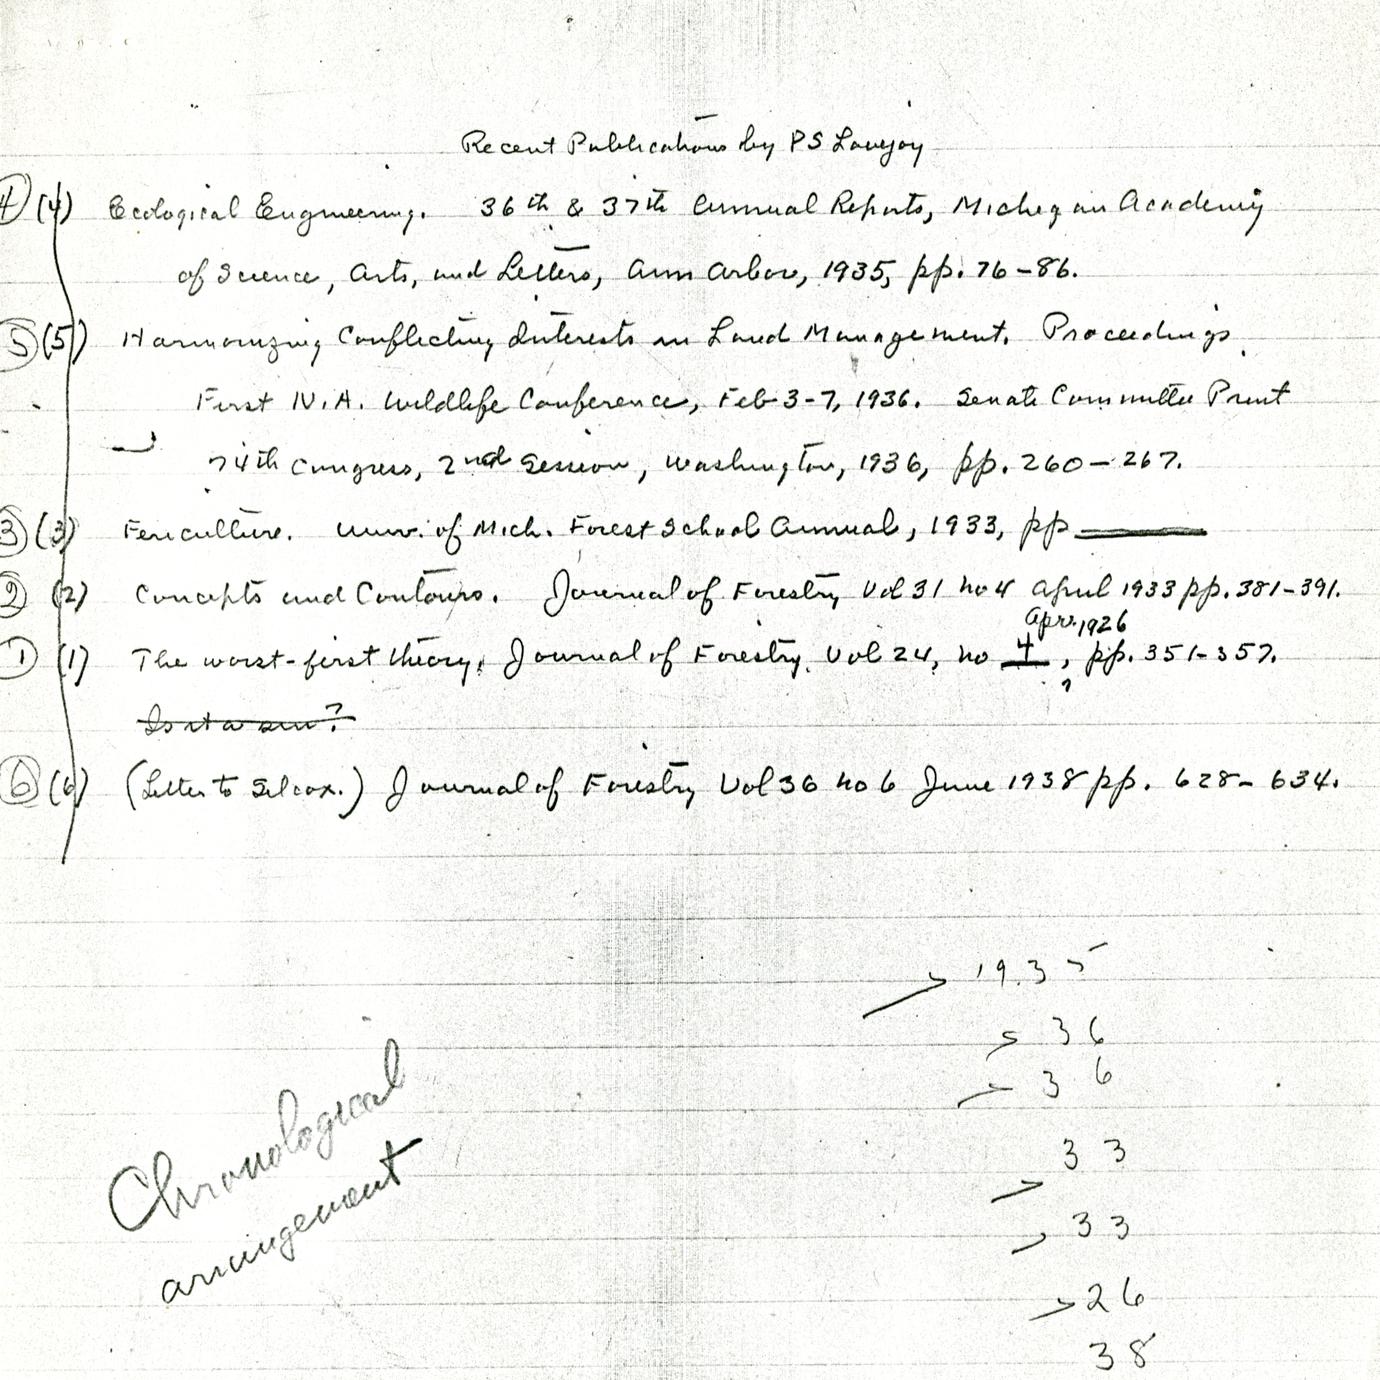 Recent Publications by P S Lovejoy
4 (4) Ecological Engineering. 36th & 37th Annual Reports, Michigan Academy
of Science, Arts, and Letters, Ann Arbor, 1935, pp. 76-86.
5 (5) Harmonizing Conflicting Interests in Land Management. Proceedings
First N.A. Wildlife Conference, Feb 3-7, 1936. Senate Committee Print
74th Congress, 2nd Session, Washington, 1936, pp. 260-267.
3 (3) Fericulture. Univ. of Mich. Forest School Annual, 1933, pp
2 (2) Concepts and Contours. Journal of Forestry Vol 31 no 4 April 1933 pp. 381-391.
Apr. 1926
1 (1) The worst-first theory. Journal of Forestry, Vol 24, no 4, pp. 351-357.
?
Is it a sin?
6 (6) (Letter to Silcox.) Journal of Forestry Vol 36 no 6 June 1938 pp. 628-634.
1935
36
36
33
33
26
38
Chronological
arrangement